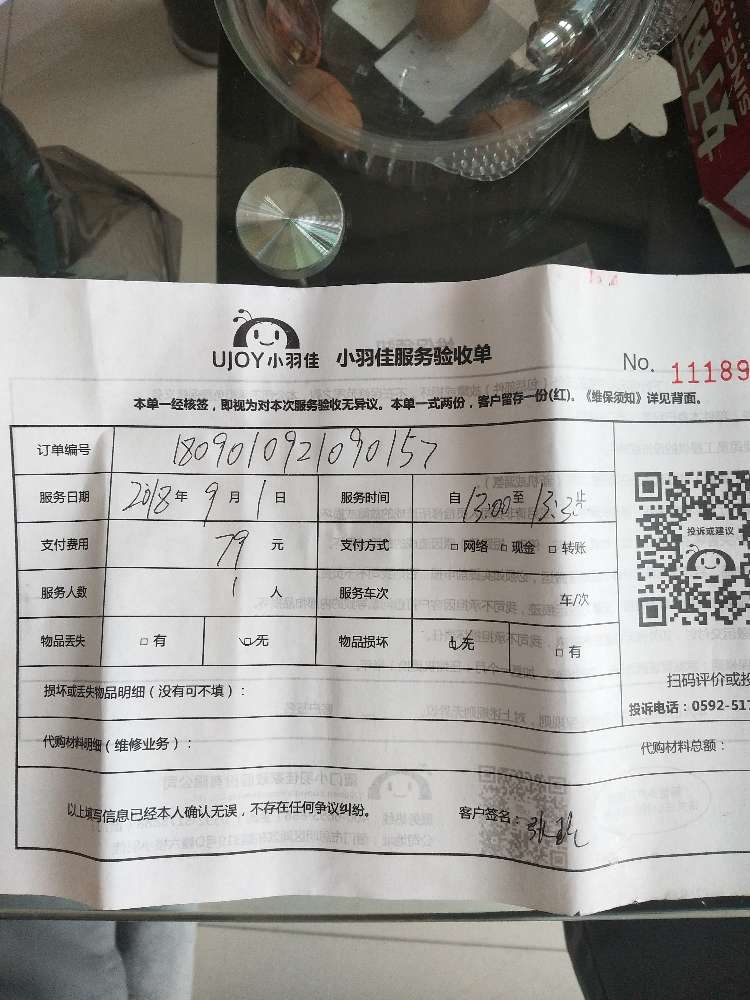 UJOY小羽佳 小羽佳服务验收单 No. 11189
本单一经核签，即视为对本次服务验收无异议。本单一式两份，客户留存一份(红)。《维保须知》详见背面。
订单编号 1809010921090157
服务日期 2018年 9月 1日 服务时间 自13:00至13:3 止
支付费用 79 元 支付方式 □ 网络 □ 现金 □ 转账
服务人数 1 人 服务车次 车/次
物品丢失 □ 有 ☑无 物品损坏 ☑无 □ 有
投诉或建议
扫码评价或投
投诉电话：0592-517
损坏或丢失物品明细（没有可不填）：
代购材料明细（维修业务）： 代购材料总额：
以上填写信息已经本人确认无误，不存在任何争议纠纷。 客户签名：张